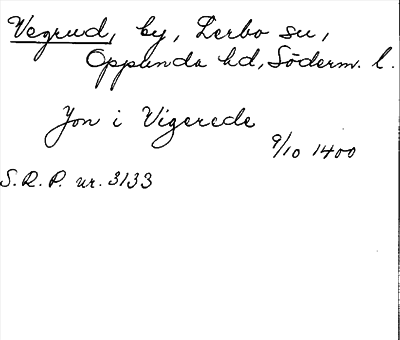 Vegrud, by, Lerbo su,
Oppunda hd, Söderm. l.
Jon i Vigerede
9/10 1400
S.R.P. nr. 3133